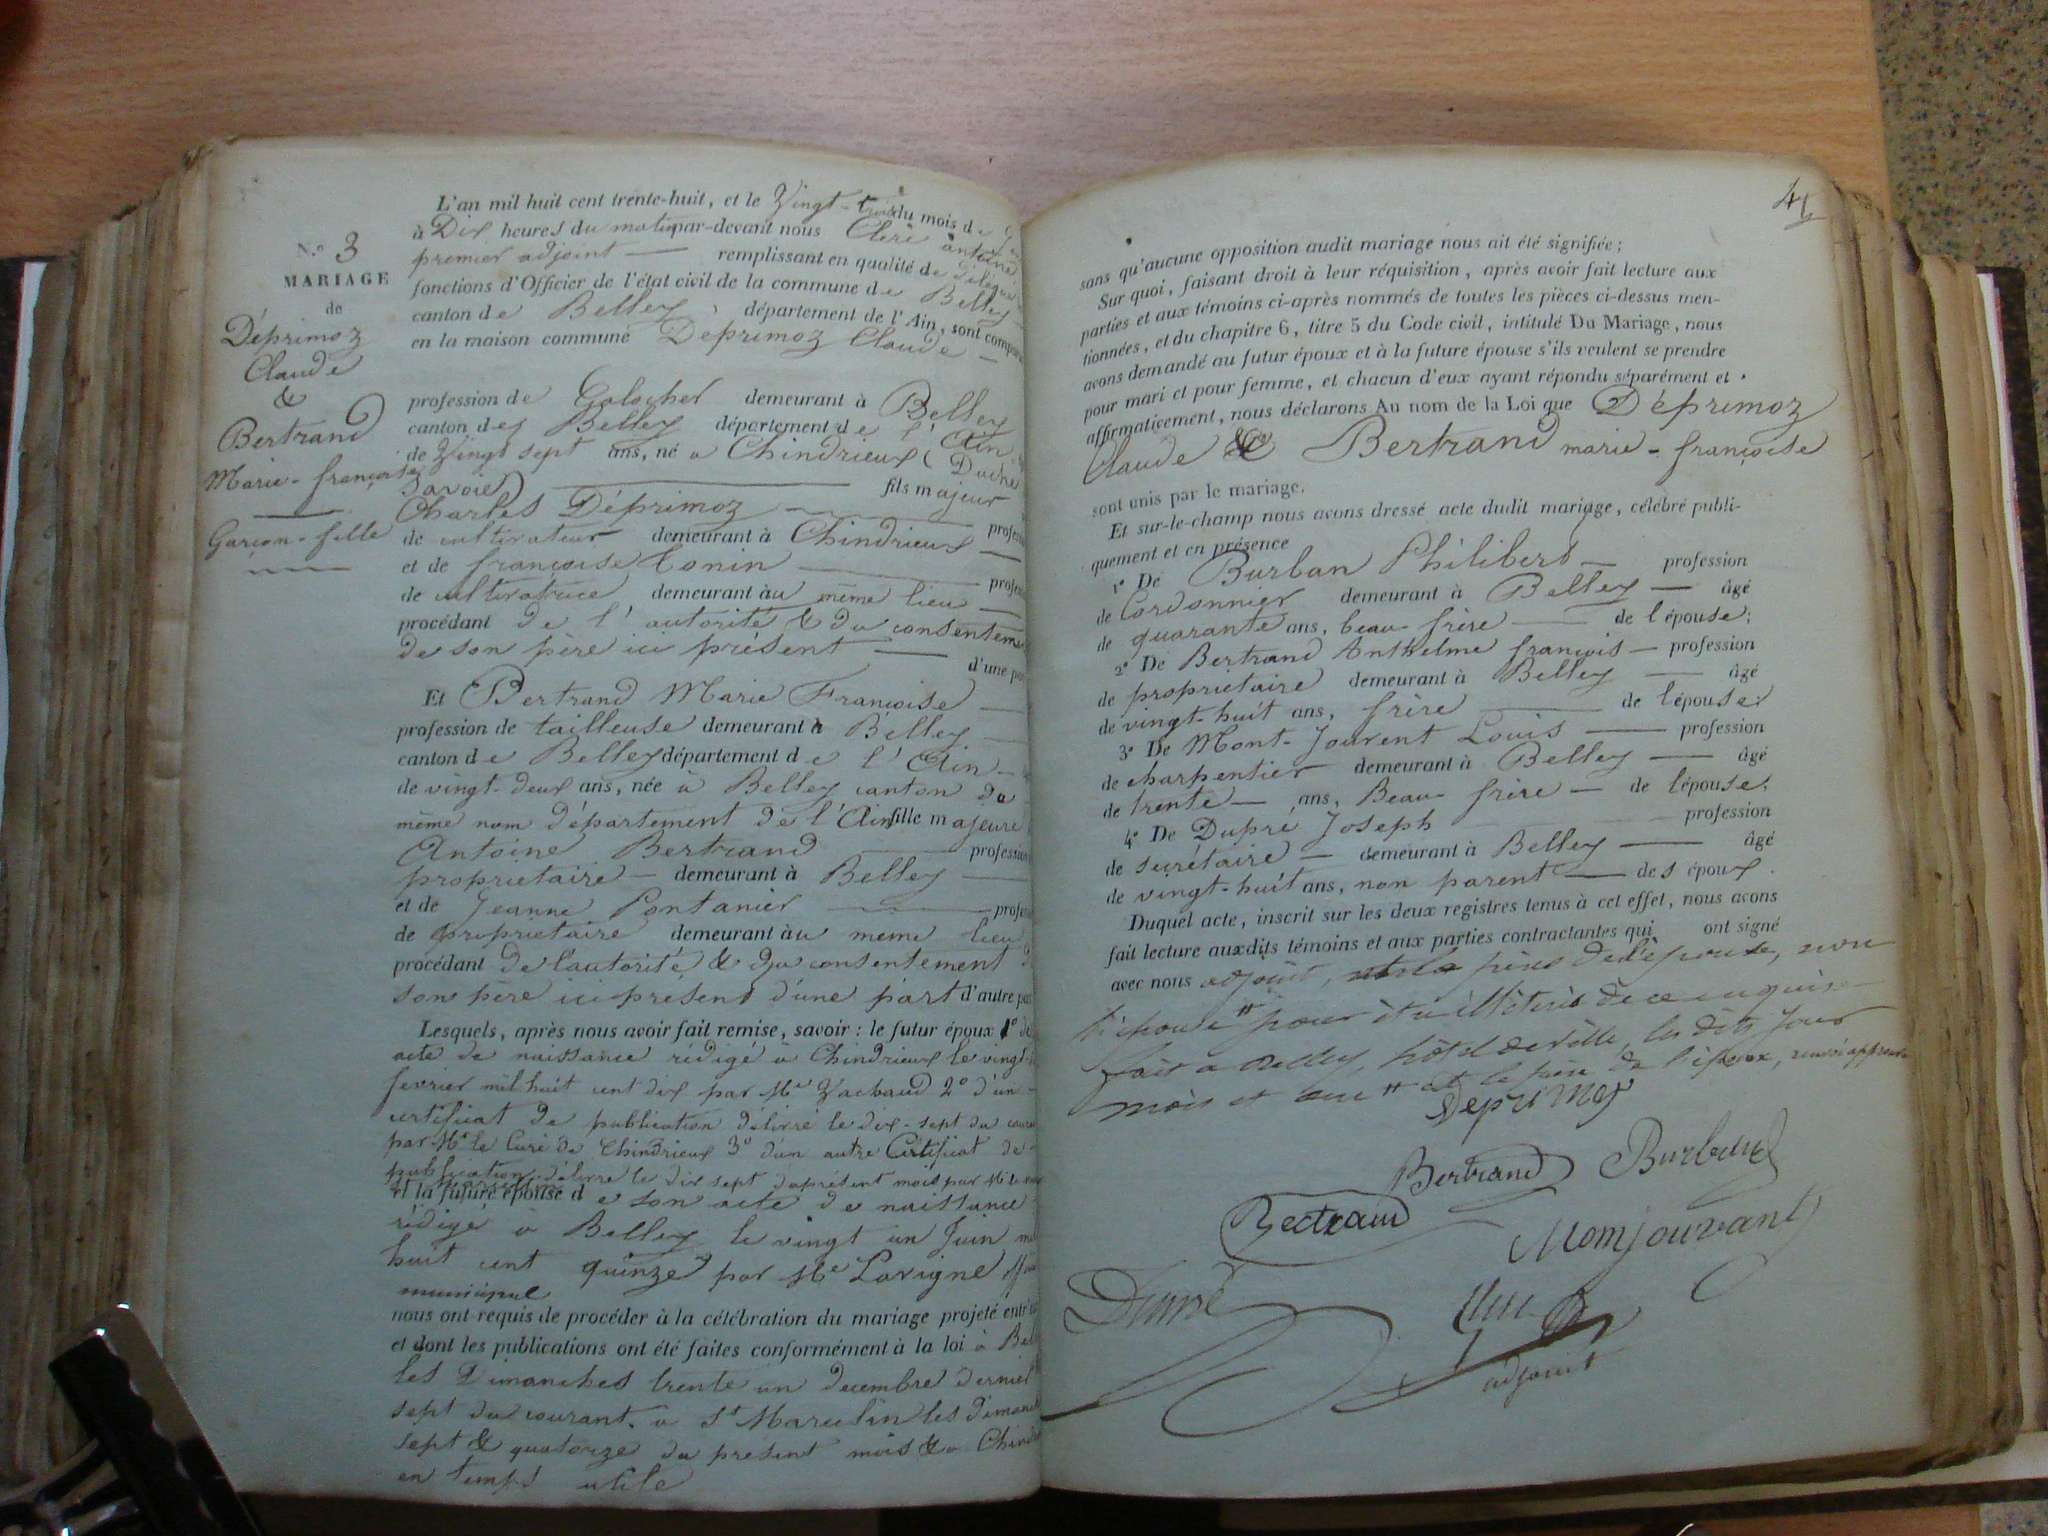 N.° 3
MARIAGE
de
Déprimoz
Claude
&
Bertrand
Marie-françoise
Garçon-fille
L'an mil huit cent trente-huit, et le Vingt-trois du mois de
à Dix heures du matin par-devant nous Clerc antoine
premier adjoint — remplissant en qualité de délégué
fonctions d'Officier de l'état civil de la commune de Belley
canton de Belley, département de l'Ain, sont comparus
en la maison commune Deprimoz Claude —
profession de Galocher demeurant à Belley
canton de Belley département de l'Ain
de Vingt sept ans, né à Chindrieux (Duché
Savoie) — fils majeur
Charles Déprimoz — profes
de cultivateur demeurant à Chindrieux —
et de françoise Conin — profes
de cultivatrice demeurant au même lieu —
procédant de l'autorité & du consenteme
de son père ici présent — d'une par
Et Bertrand Marie Françoise —
profession de tailleuse demeurant à Belley —
canton de Belley département de l'Ain —
de vingt-deux ans, née à Belley canton du
même nom département de l'Ain fille majeure
Antoine Bertrand — profession
propriétaire — demeurant à Belley —
et de Jeanne Pontanier — profes
de propriétaire demeurant au même lieu
procédant de l'autorité & du consentement d
son père ici présent d'une part d'autre par
Lesquels, après nous avoir fait remise, savoir : le futur époux 1° de
acte de naissance rédigé à Chindrieux le vingt-
fevrier mil huit cent dix par Mr Vachaud 2° d'un
certificat de publication délivré le dix-sept du coura
par Mr le Curé de Chindrieux 3° d'un autre Certificat de
publication délivré le dix sept du présent mois par Mr le
et la future épouse de son acte de naissance
rédigé à Belley le vingt un Juin mil
huit cent quinze par Mr Lavigne
municipal
nous ont requis de procéder à la célébration du mariage projeté entr'
et dont les publications ont été faites conformément à la loi à Bell
les Dimanches trente un decembre dernier
sept du courant. a St Marcelin les dimanch
sept & quatorze du présent mois & a Chind
en temps utile
4
sans qu'aucune opposition audit mariage nous ait été signifiée ;
Sur quoi, faisant droit à leur réquisition, après avoir fait lecture aux
parties et aux témoins ci-après nommés de toutes les pièces ci-dessus men-
tionnées, et du chapitre 6, titre 5 du Code civil, intitulé Du Mariage, nous
avons demandé au futur époux et à la future épouse s'ils veulent se prendre
pour mari et pour femme, et chacun d'eux ayant répondu séparément et
affirmativement, nous déclarons Au nom de la Loi que Déprimoz
Claude & Bertrand marie-françoise
sont unis par le mariage.
Et sur-le-champ nous avons dressé acte dudit mariage, célébré publi-
quement et en présence
1° De Burban Philibert — profession
de Cordonnier demeurant à Belley — âgé
de quarante ans, beau-frère — de l'épouse;
2° De Bertrand Anthelme françois — profession
de propriétaire demeurant à Belley — âgé
de vingt-huit ans, frère — de l'épouse;
3° De Mont-Jouvent Louis — profession
de charpentier demeurant à Belley — âgé
de trente — ans, Beau-frère — de l'épouse;
4° De Dupré Joseph — profession
de secrétaire — demeurant à Belley — âgé
de vingt-huit ans, non parent — des époux.
Duquel acte, inscrit sur les deux registres tenus à cet effet, nous avons
fait lecture auxdits témoins et aux parties contractantes qui ont signé
avec nous adjoint, et le père de l'épouse, non
l'épouse pour être illétérés de ce enquis
fait à Belley, hôtel de ville, les dits Jour
mois et an et le père de l'époux,
Deprimoz
Bertrand Burban
Bertrand
Monjouvant
Dupré
Clerc
adjoint